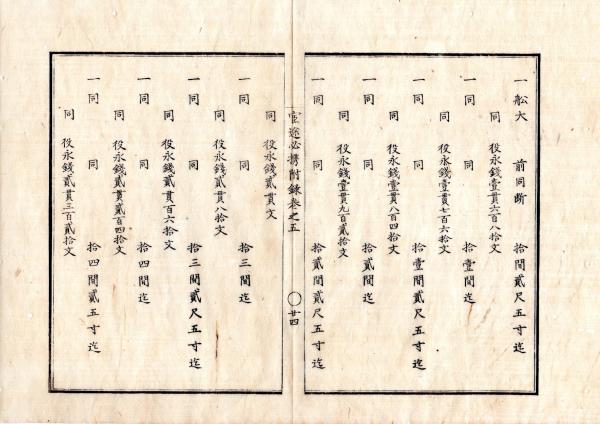 一船大 前同断 拾間貳尺五寸迄
同 役永錢壹貫六百八拾文
一同 同 拾壹間迄
同 役永錢壹貫七百六拾文
一同 同 拾壹間貳尺五寸迄
同 役永錢壹貫八百四拾文
一同 同 拾貳間迄
同 役永錢壹貫九百貳拾文
一同 同 拾貳間貳尺五寸迄
官途必携附録巻之五 〇 廿四
同 役永錢貳貫文
一同 同 拾三間迄
同 役永錢貳貫八拾文
一同 同 拾三間貳尺五寸迄
同 役永錢貳貫百六拾文
一同 同 拾四間迄
同 役永錢貳貫貳百四拾文
一同 同 拾四間貳五寸迄
同 役永錢貳貫三百貳拾文